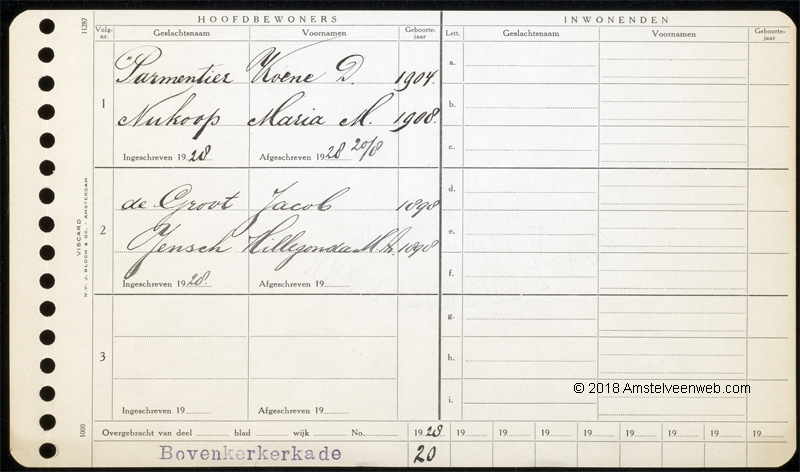 HOOFDBEWONERS INWONENDEN
Volg-nr. Geslachtsnaam Voornamen Geboorte-jaar Lett. Geslachtsnaam Voornamen Geboorte-jaar
11287
1 Parmentier Koene D. 1904.
Nukoop Maria M. 1908.
Ingeschreven 1928 Afgeschreven 1928 20/8
2 de Groot Jacob 1898
Jensch Hillegonda M.A. 1898
Ingeschreven 1928. Afgeschreven 19
3
Ingeschreven 19 Afgeschreven 19
a.
b.
c.
d.
e.
f.
g.
h.
i.
VISCARD
N.V. J. BLOCH & CO. - AMSTERDAM
1009
Overgebracht van deel blad wijk No. 1928 19 19 19 19 19 19 19 19
Bovenkerkerkade 20
© 2018 Amstelveenweb.com